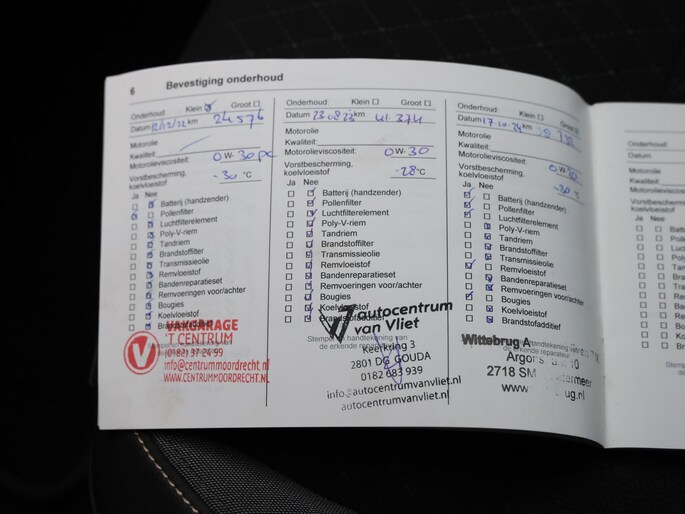 6 Bevestiging onderhoud
Onderhoud: Klein Groot
Datum 12/12/22 km 24576
Motorolie
Kwaliteit:
Motorolieviscositeit: 0W-30
Vorstbescherming,
koelvloeistof -30 °C
Ja Nee
Batterij (handzender)
Pollenfilter
Luchtfilterelement
Poly-V-riem
Tandriem
Brandstoffilter
Transmissieolie
Remvloeistof
Bandenreparatieset
Remvoeringen voor/achter
Bougies
Koelvloeistof
VAKGARAGE
T CENTRUM
(0182) 37 24 99
info@centrummoordrecht.nl
WWW.CENTRUMMOORDRECHT.NL
Onderhoud: Klein Groot
Datum 23 08 23 km 41.374
Motorolie
Kwaliteit:
Motorolieviscositeit: 0W-30
Vorstbescherming,
koelvloeistof -28 °C
Ja Nee
Batterij (handzender)
Pollenfilter
Luchtfilterelement
Poly-V-riem
Tandriem
Brandstoffilter
Transmissieolie
Remvloeistof
Bandenreparatieset
Remvoeringen voor/achter
Bougies
Koelvloeistof
Brandstofadditief
autocentrum
van Vliet
Stempel en handtekening van
de erkende reparateur
Keerkring 3
2801 DG GOUDA
0182 683 939
info@autocentrumvanvliet.nl
autocentrumvanvliet.nl
Onderhoud: Klein Groot
Datum km
Motorolie
Kwaliteit:
Motorolieviscositeit: 0W-
Vorstbescherming,
koelvloeistof -30 °C
Ja Nee
Batterij (handzender)
Pollenfilter
Luchtfilterelement
Poly-V-riem
Tandriem
Brandstoffilter
Transmissieolie
Remvloeistof
Bandenreparatieset
Remvoeringen voor/achter
Bougies
Koelvloeistof
Brandstofadditief
Wittebrug
reparateur
2718 SM
www.
Onderhoud:
Datum
Motorolie
Kwaliteit:
Vorstbescherming,
koelvloeistof
Ja Nee